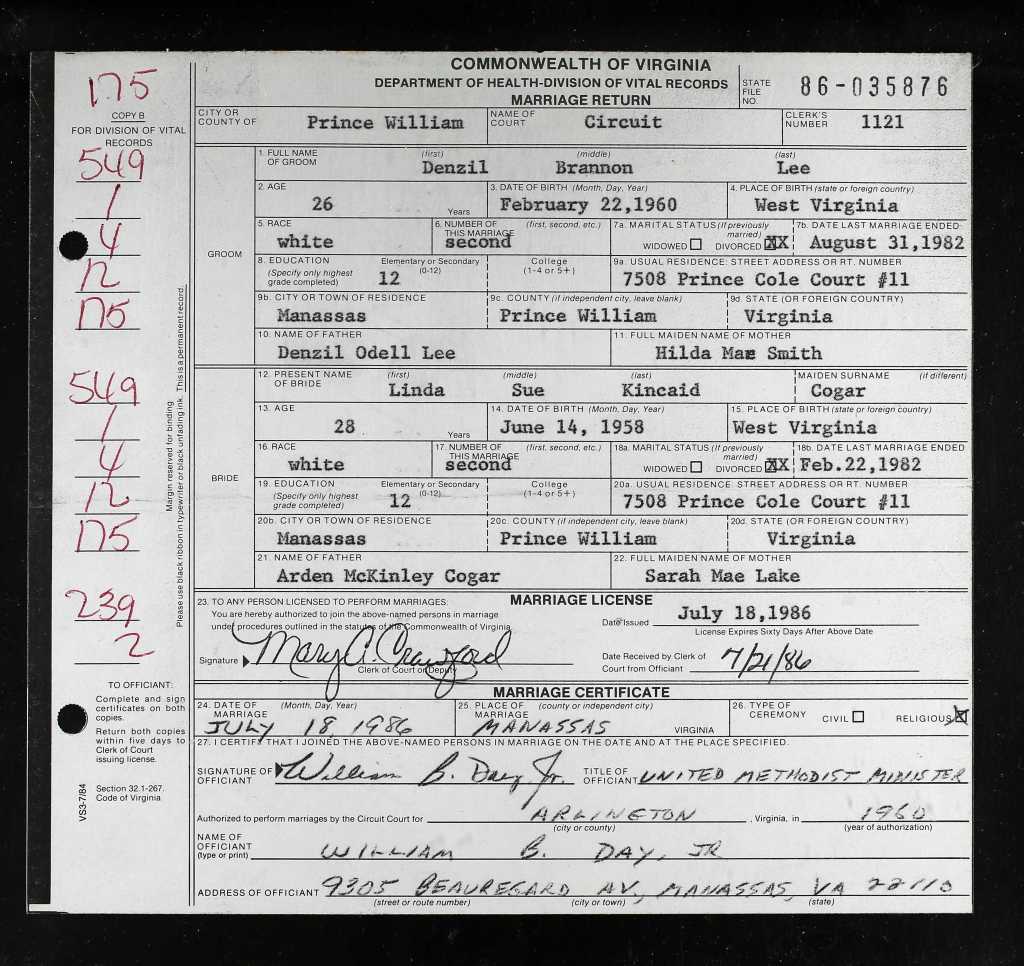 COMMONWEALTH OF VIRGINIA
DEPARTMENT OF HEALTH-DIVISION OF VITAL RECORDS
MARRIAGE RETURN
STATE FILE NO. 86-035876
175
COPY B
FOR DIVISION OF VITAL RECORDS
CITY OR COUNTY OF Prince William NAME OF COURT Circuit CLERK'S NUMBER 1121
549
1
4
12
175
GROOM
1. FULL NAME OF GROOM (first) Denzil (middle) Brannon (last) Lee
2. AGE 26 Years 3. DATE OF BIRTH (Month, Day, Year) February 22,1960 4. PLACE OF BIRTH (state or foreign country) West Virginia
5. RACE white 6. NUMBER OF THIS MARRIAGE (first, second, etc.) second 7a. MARITAL STATUS (If previously married) WIDOWED DIVORCED XX 7b. DATE LAST MARRIAGE ENDED: August 31,1982
8. EDUCATION (Specify only highest grade completed) Elementary or Secondary (0-12) 12 College (1-4 or 5+) 9a. USUAL RESIDENCE: STREET ADDRESS OR RT. NUMBER 7508 Prince Cole Court #11
9b. CITY OR TOWN OF RESIDENCE Manassas 9c. COUNTY (if independent city, leave blank) Prince William 9d. STATE (OR FOREIGN COUNTRY) Virginia
10. NAME OF FATHER Denzil Odell Lee 11. FULL MAIDEN NAME OF MOTHER Hilda Mae Smith
549
1
4
12
175
BRIDE
12. PRESENT NAME OF BRIDE (first) Linda (middle) Sue (last) Kincaid MAIDEN SURNAME (if different) Cogar
13. AGE 28 Years 14. DATE OF BIRTH (Month, Day, Year) June 14, 1958 15. PLACE OF BIRTH (state or foreign country) West Virginia
16. RACE white 17. NUMBER OF THIS MARRIAGE (first, second, etc.) second 18a. MARITAL STATUS (If previously married) WIDOWED DIVORCED XX 18b. DATE LAST MARRIAGE ENDED Feb.22,1982
19. EDUCATION (Specify only highest grade completed) Elementary or Secondary (0-12) 12 College (1-4 or 5+) 20a. USUAL RESIDENCE: STREET ADDRESS OR RT. NUMBER 7508 Prince Cole Court #11
20b. CITY OR TOWN OF RESIDENCE Manassas 20c. COUNTY (if independent city, leave blank) Prince William 20d. STATE (OR FOREIGN COUNTRY) Virginia
21. NAME OF FATHER Arden McKinley Cogar 22. FULL MAIDEN NAME OF MOTHER Sarah Mae Lake
Margin reserved for binding
Please use black ribbon in typewriter or black unfading ink. This is a permanent record.
239
2
MARRIAGE LICENSE
23. TO ANY PERSON LICENSED TO PERFORM MARRIAGES:
You are hereby authorized to join the above-named persons in marriage
under procedures outlined in the statutes of the Commonwealth of Virginia
Date Issued July 18,1986
License Expires Sixty Days After Above Date
Signature Mary A. Crawford
Clerk of Court or Deputy
Date Received by Clerk of Court from Officiant 7/21/86
TO OFFICIANT:
Complete and sign certificates on both copies.
Return both copies within five days to Clerk of Court issuing license.
Section 32.1-267. Code of Virginia
VS3-7/84
MARRIAGE CERTIFICATE
24. DATE OF MARRIAGE (Month, Day, Year) JULY 18, 1986 25. PLACE OF MARRIAGE (county or independent city) MANASSAS VIRGINIA 26. TYPE OF CEREMONY CIVIL RELIGIOUS X
27. I CERTIFY THAT I JOINED THE ABOVE-NAMED PERSONS IN MARRIAGE ON THE DATE AND AT THE PLACE SPECIFIED.
SIGNATURE OF OFFICIANT William B. Day, Jr. TITLE OF OFFICIANT UNITED METHODIST MINISTER
Authorized to perform marriages by the Circuit Court for ARLINGTON , Virginia, in 1960
(city or county) (year of authorization)
NAME OF OFFICIANT (type or print) WILLIAM B. DAY, JR
ADDRESS OF OFFICIANT 9305 BEAUREGARD AV, MANASSAS, VA 22110
(street or route number) (city or town) (state)